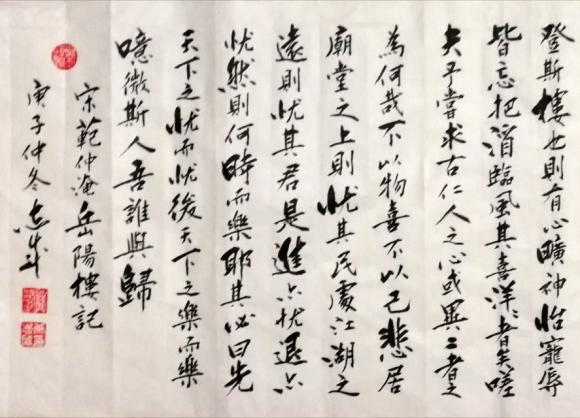 登斯樓也則有心曠神怡寵辱
皆忘把酒臨風其喜洋〻者矣嗟
夫予嘗求古仁人之心或異二者之
為何哉不以物喜不以己悲居
廟堂之上則忧其民處江湖之
遠則忧其君是進亦忧退亦
忧然則何時而樂耶其必曰先
天下之忧而忧後天下之樂而樂
噫微斯人吾誰與歸
宋範仲淹岳陽樓記
庚子仲冬